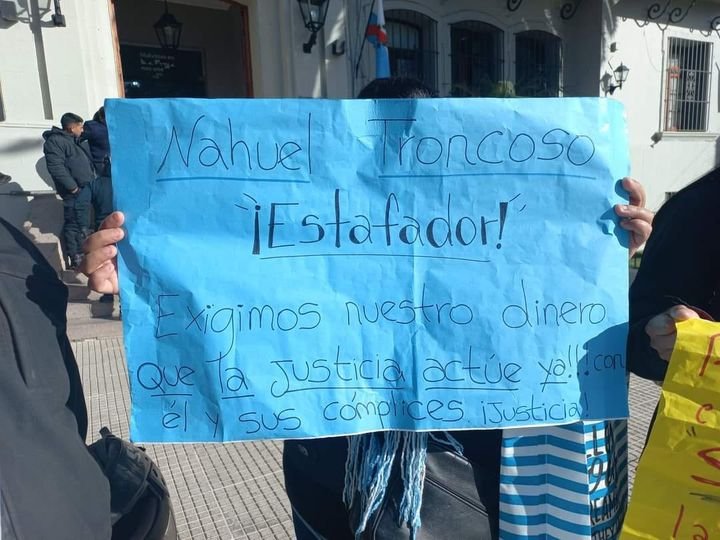 Nahuel Troncoso
"¡Estafador!"
Exigimos nuestro dinero
que la justicia actúe ya!!! con
él y sus cómplices. ¡Justicia!